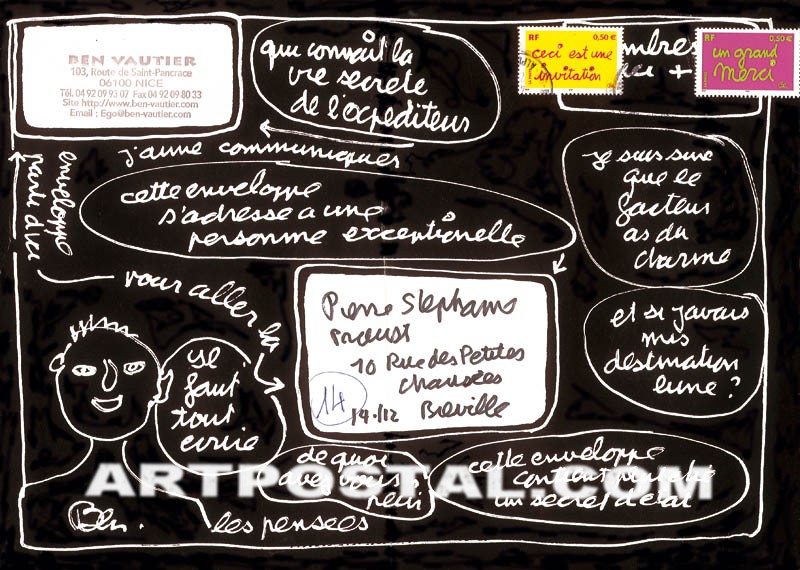 BEN VAUTIER
103, Route de Saint-Pancrace
06100 NICE
Tél. 04 92 09 93 07 Fax 04 92 09 80 33
Site http://www.ben-vautier.com
Email : Ego@ben-vautier.com
qui connait la
vie secrete
de l'expediteur
RF 0,50€
ceci est une
invitation
RF 0,50€
un grand
Merci
j'aime communiquer
cette enveloppe
s'adresse a une
personne exceptionelle
je suis sure
que le
facteur
as du
charme
enveloppe
partie d'ici
pour aller la
Pierre Stephane
Proust
10 Rue des Petites
chaussées
14 14.112 Breville
et si j'avais
mis
destination
lune ?
je
faut
tout
ecrire
de quoi
avez vous
peur
cette enveloppe
contient
un secret d'etat
ARTPOSTAL.COM
Ben.
les pensees